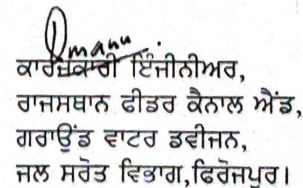 ਕਾਰਜਕਾਰੀ ਇੰਜੀਨੀਅਰ,
ਰਾਜਸਥਾਨ ਫੀਡਰ ਕੈਨਾਲ ਐਂਡ,
ਗਰਾਊਂਡ ਵਾਟਰ ਡਵੀਜਨ,
ਜਲ ਸਰੋਤ ਵਿਭਾਗ,ਫਿਰੋਜਪੁਰ।